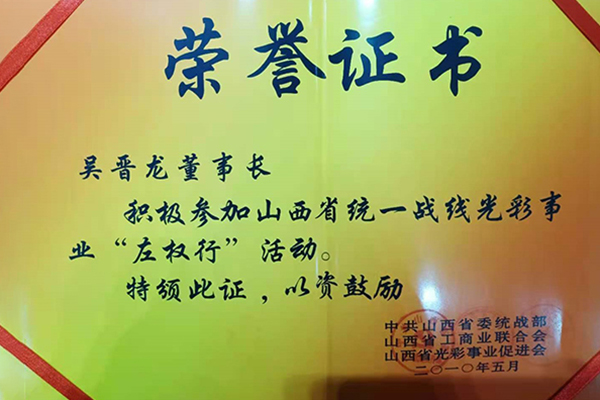 荣誉证书
吴晋龙董事长
积极参加山西省统一战线光彩事
业“左权行”活动。
特颁此证，以资鼓励
中共山西省委统战部
山西省工商业联合会
山西省光彩事业促进会
二〇一〇年五月